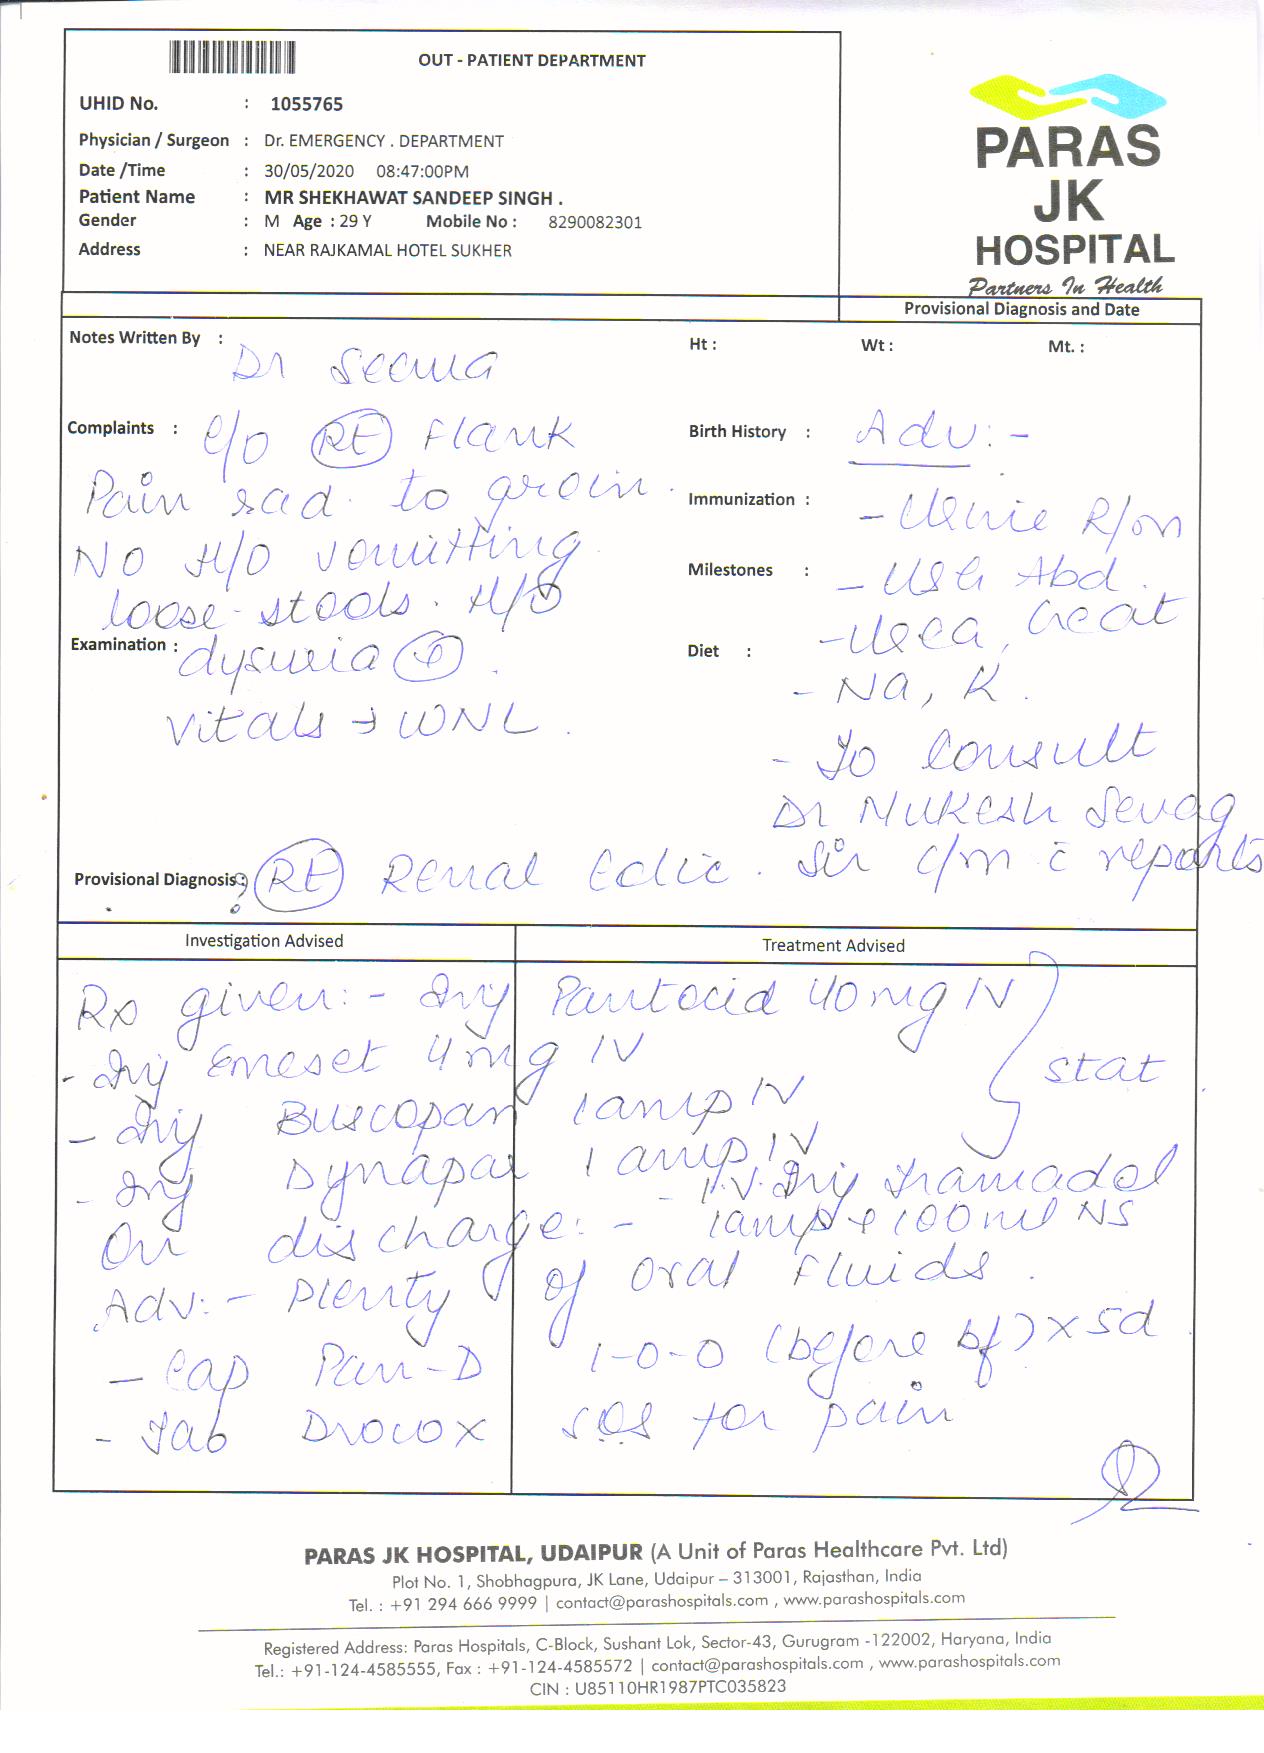 OUT - PATIENT DEPARTMENT
UHID No. : 1055765
Physician / Surgeon : Dr. EMERGENCY . DEPARTMENT
Date /Time : 30/05/2020 08:47:00PM
Patient Name : MR SHEKHAWAT SANDEEP SINGH .
Gender : M Age : 29 Y Mobile No : 8290082301
Address : NEAR RAJKAMAL HOTEL SUKHER
PARAS
JK
HOSPITAL
Partners In Health
Provisional Diagnosis and Date
Notes Written By : Dr Seema
Ht : Wt : Mt. :
Complaints : c/o Flank
Pain rad. to groin.
No H/O vomitting
loose-stools. H/O
Examination : dysuria
Vitals → WNL.
Birth History : Adv:-
Immunization : - Urine R/m
Milestones : - USG Abd.
Diet : - Urea, Creat
- Na, K.
- To Consult
Dr Mukesh
Sir c/m c̄ reports
Provisional Diagnosis: ? Renal Colic.
Investigation Advised
Treatment Advised
Rx given:- Inj Pantocid 40 mg IV
- Inj Emeset 4 mg IV
stat
- Inj Buscopan 1 amp IV
- Inj Dynapar 1 amp IV
- I.V. Inj Tramadol
1 amp + 100 ml NS
On discharge:-
Adv:- Plenty of oral fluids.
- Cap Pan-D 1-0-0 (before bf) x 5d
- Tab SOS for pain
PARAS JK HOSPITAL, UDAIPUR (A Unit of Paras Healthcare Pvt. Ltd)
Plot No. 1, Shobhagpura, JK Lane, Udaipur – 313001, Rajasthan, India
Tel. : +91 294 666 9999 | contact@parashospitals.com , www.parashospitals.com
Registered Address: Paras Hospitals, C-Block, Sushant Lok, Sector-43, Gurugram -122002, Haryana, India
Tel.: +91-124-4585555, Fax : +91-124-4585572 | contact@parashospitals.com , www.parashospitals.com
CIN : U85110HR1987PTC035823